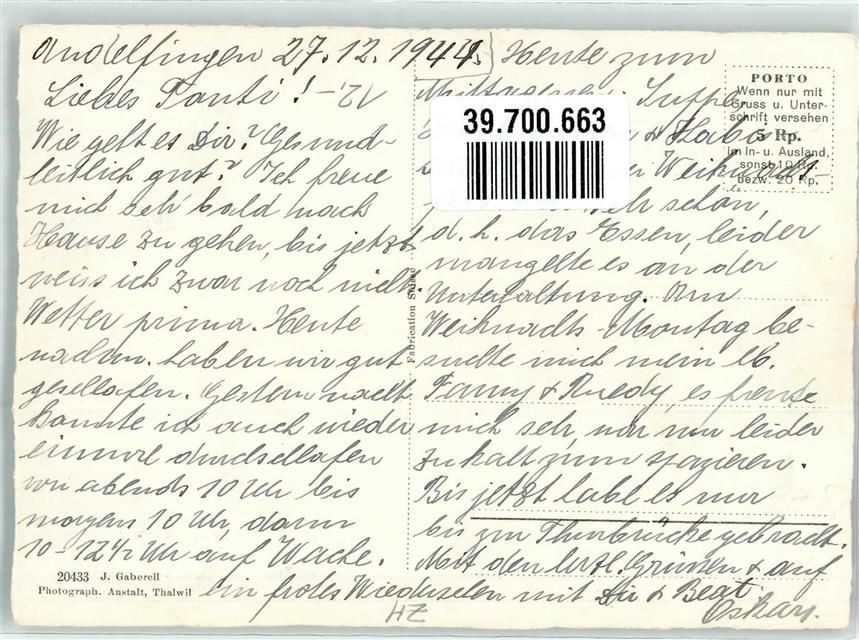 Andelfingen 27.12.1944.
Liebes Tanti! –
Wie geht es Dir? Gesund-
heitlich gut? Ich freue
mich sehr bald nach
Hause zu gehen, bis jetzt
weiss ich zwar noch nicht.
Wetter prima. Heute
nachm. haben wir gut
geschlafen. Gestern nacht
konnte ich auch wieder
einmal durchschlafen
von abends 10 Uhr bis
morgens 10 Uhr, dann
10–12½ Uhr auf Wache.
Heute zum
Mittagessen Suppe
&
Weihnacht-
sehr schön,
d. h. das Essen, leider
mangelte es an der
Unterhaltung. Am
Weihnachts-Montag be-
suchte mich mein lb.
Fanny & Ruedy, es freute
mich sehr, war nur leider
zu kalt zum spazieren.
Bis jetzt habe es nur
bis zur Thurbrücke gebracht.
Mit den herzl. Grüssen & auf
ein frohes Wiedersehen mit Dir & Beat
Oskar.
HZ
PORTO
Wenn nur mit
Gruss u. Unter-
schrift versehen
5 Rp.
im In- u. Ausland,
sonst 10 Rp.
bezw. 20 Rp.
39.700.663
Fabrication Suisse
20433 J. Gaberell
Photograph. Anstalt, Thalwil